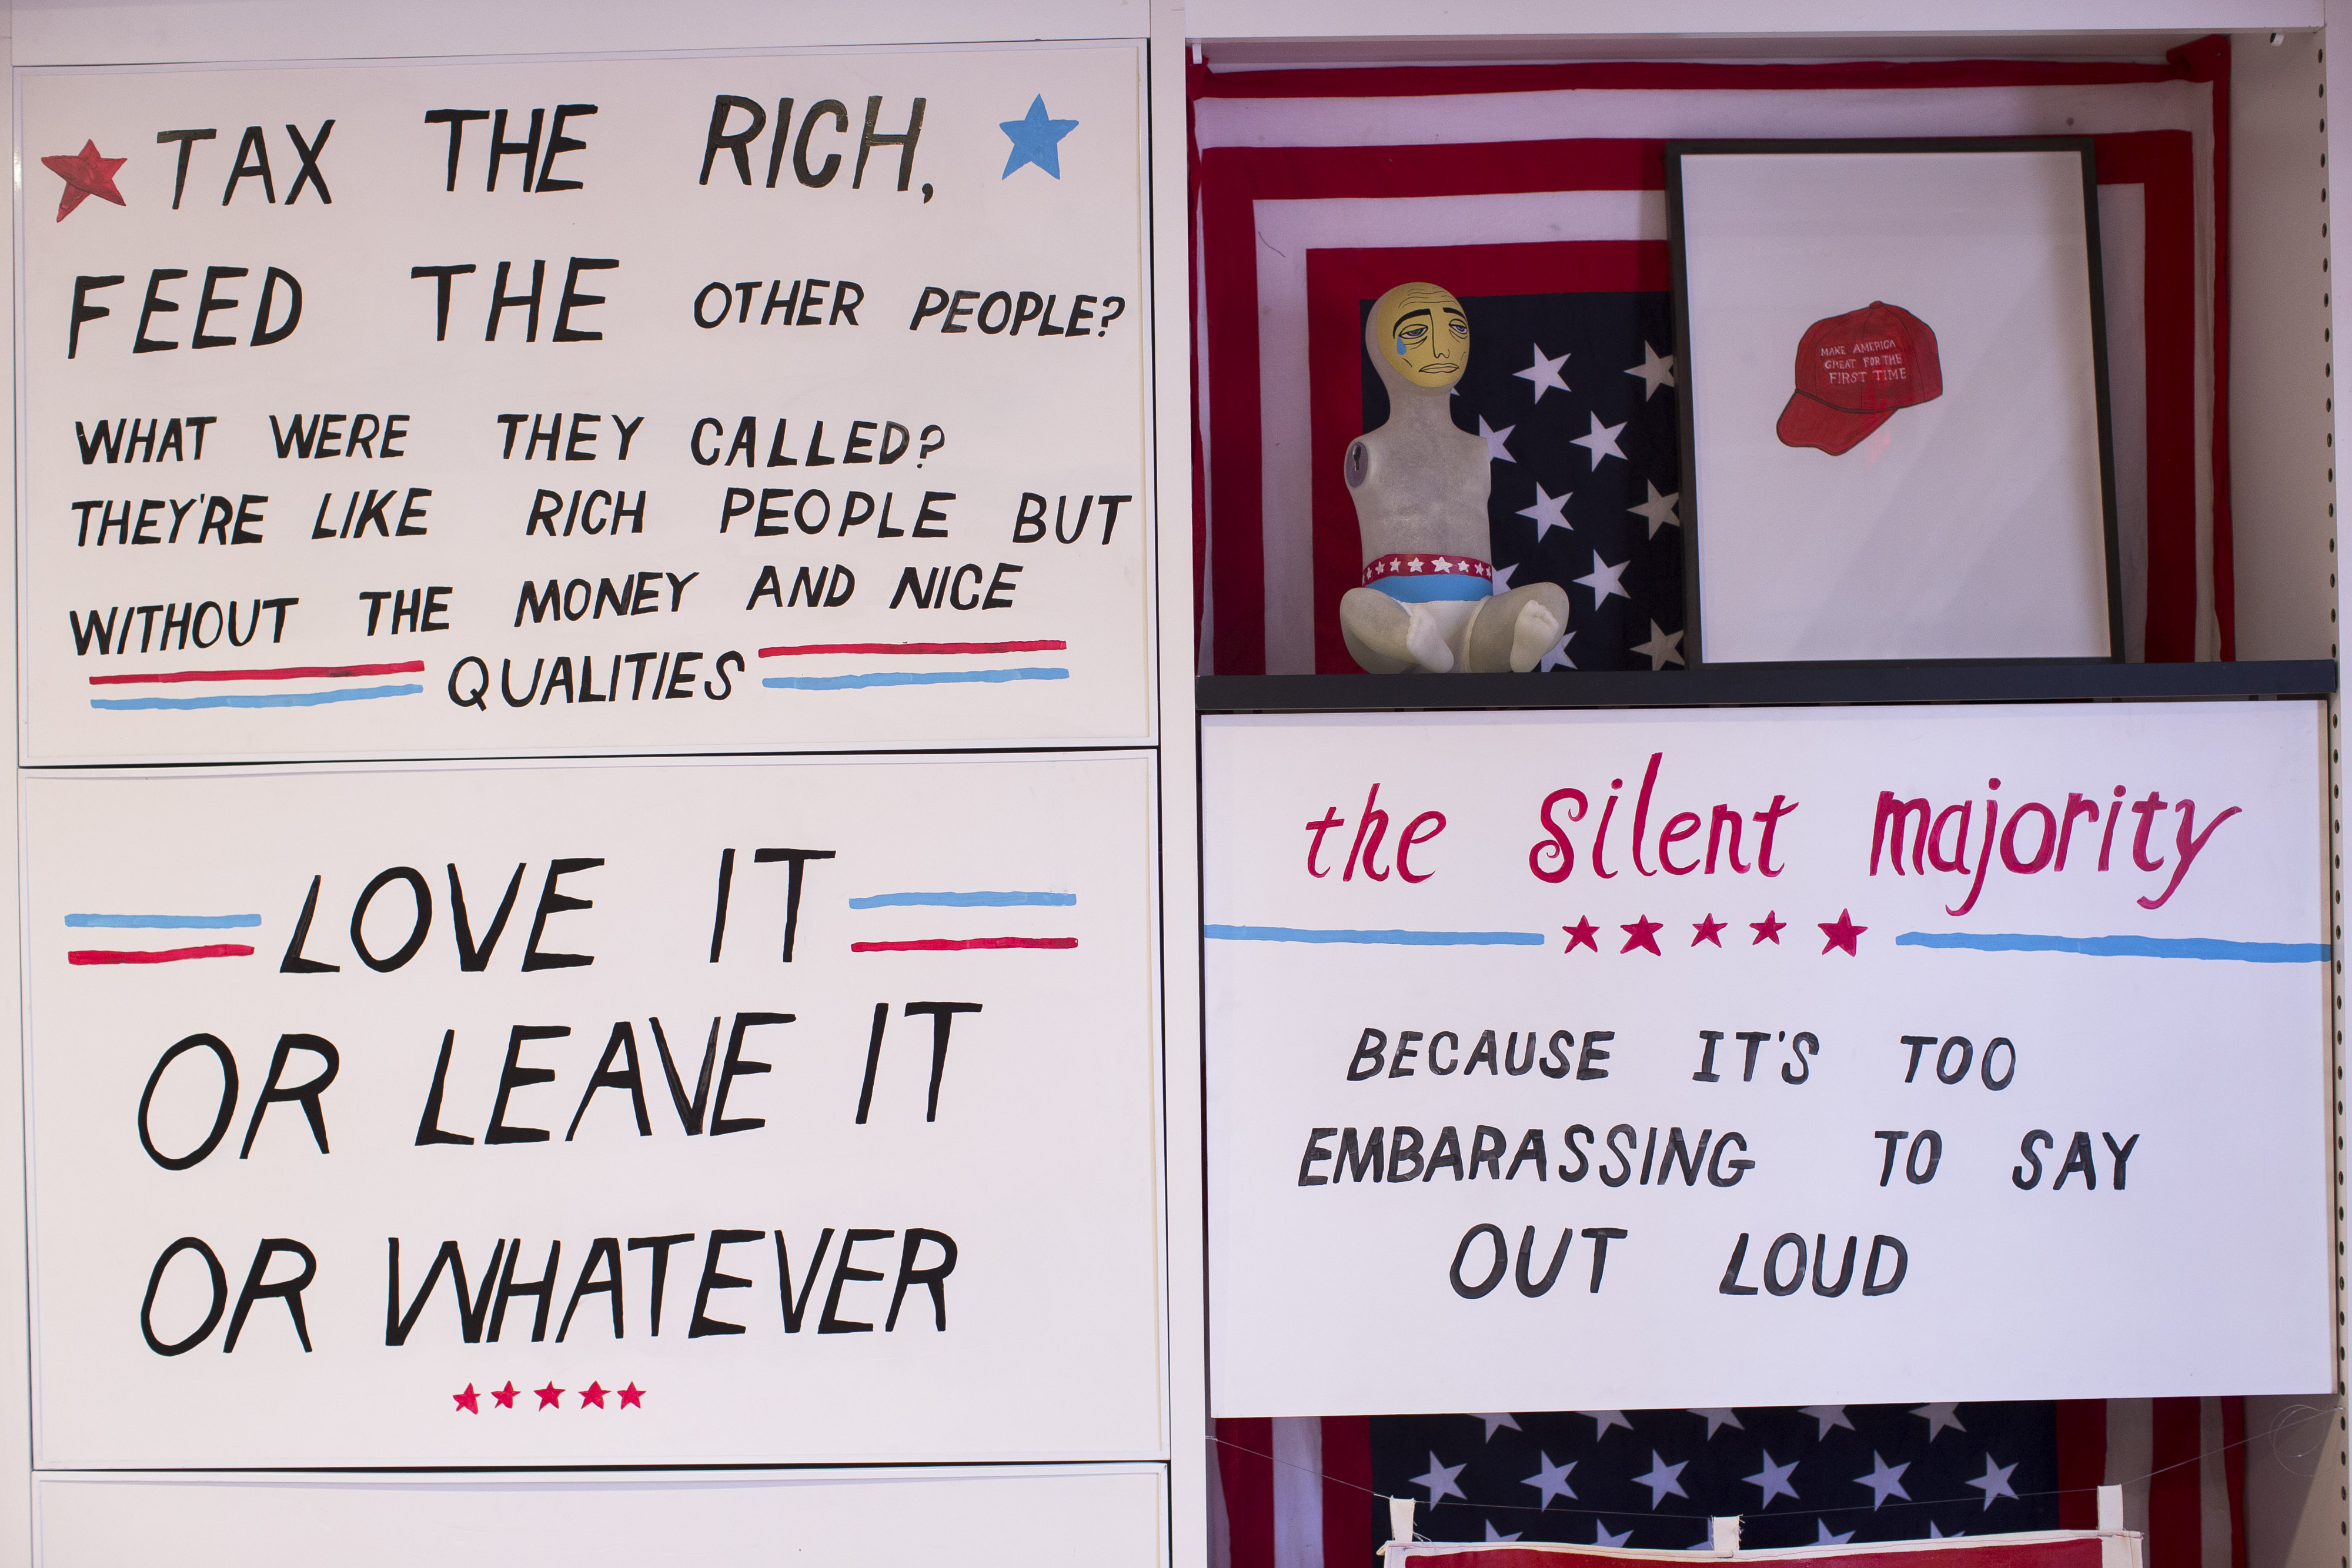 TAX THE RICH,
FEED THE OTHER PEOPLE?
WHAT WERE THEY CALLED?
THEY'RE LIKE RICH PEOPLE BUT
WITHOUT THE MONEY AND NICE
QUALITIES
LOVE IT
OR LEAVE IT
OR WHATEVER
MAKE AMERICA
GREAT FOR THE
FIRST TIME
the silent majority
BECAUSE IT'S TOO
EMBARASSING TO SAY
OUT LOUD